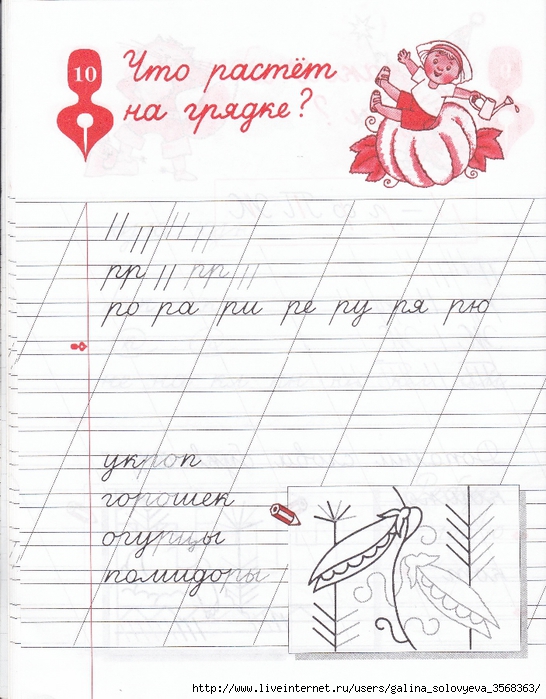 10
Что растёт
на грядке?
рр рр
ро ра ри ре ру ря рю
укроп
горошек
огурцы
помидоры
http://www.liveinternet.ru/users/galina_solovyeva_3568363/